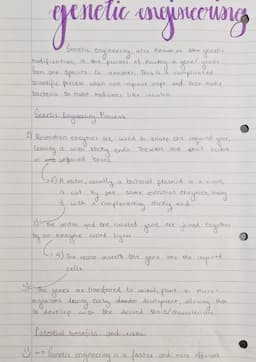 genetic engineering
Genetic engineering, also known as the genetic
modification, is the process of moving a gene/genes
from one species to another. This is a complicated
scientific process which can require steps and uses
bacteria to make medicines like insulin.
Genetic Engineering Process
1) Restriction enzymes are used to isolate the required gene,
leaving it with sticky ends. These are short
of unpaired bases.
2) A vector, usually a bacterial plasmid or a virus,
is cut by the same restriction enzymes
with complementing sticky ends.
3) The vector and the isolated gene are joined together
by an enzyme called ligase.
4) The vector inserts the gene into the required
cells.
5) The genes are transferred to animal, plant or micro-
organisms during early development, allowing them
to develop with the desired traits/characteristics.
Potential benefits and risks
Genetic engineering is a faster and more efficient